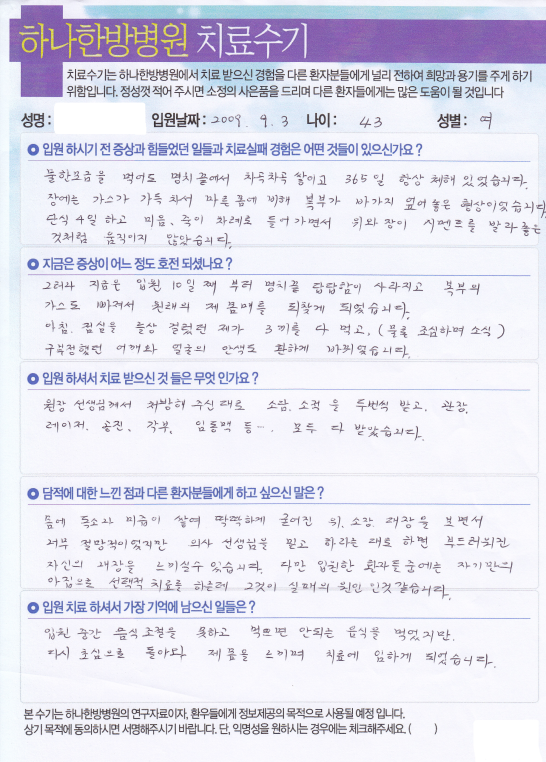 하나한방병원 치료수기
치료수기는 하나한방병원에서 치료 받으신 경험을 다른 환자분들에게 널리 전하여 희망과 용기를 주게 하기
위함입니다. 정성껏 적어 주시면 소정의 사은품을 드리며 다른 환자들에게는 많은 도움이 될 것입니다
성명 : 입원날짜 : 2009. 9. 3 나이 : 43 성별 : 여
입원 하시기 전 증상과 힘들었던 일들과 치료실패 경험은 어떤 것들이 있으신가요 ?
물한모금을 먹어도 명치 끝에서 차곡차곡 쌓이고 365일 항상 체해 있었습니다.
장에는 가스가 가득 차서 마른 몸에 비해 복부가 바가지 엎어놓은 형상이었습니다
단식 4일 하고 미음, 죽이 차례로 들어가면서 위와 장이 시멘트를 발라놓은
것처럼 움직이지 않았습니다.
지금은 증상이 어느 정도 호전 되셨나요 ?
그러나 지금은 입원 10일째 부터 명치끝 답답함이 사라지고 복부의
가스도 빠져서 원래의 제 몸매를 되찾게 되었습니다.
아침. 점심을 늘상 걸렀던 제가 3끼를 다 먹고, (물론 조심하며 소식)
구부정했던 어깨와 얼굴의 안색도 환하게 바뀌었습니다.
입원 하셔서 치료 받으신 것 들은 무엇 인가요 ?
원장 선생님께서 처방해 주신대로 소담. 소적 을 두번씩 받고. 관장.
레이저. 공진. 각부. 임동맥 등…. 모두 다 받았습니다.
담적에 대한 느낀 점과 다른 환자분들에게 하고 싶으신 말은 ?
몸에 독소와 미즙이 쌓여 딱딱하게 굳어진 위. 소장. 대장을 보면서
너무 절망적이었지만 의사 선생님을 믿고 하라는 대로 하면 부드러워진
자신의 내장을 느끼실수 있습니다. 다만 입원한 환자들 중에는 자기만의
아집으로 선택적 치료를 하는데 그것이 실패의 원인 인것 같습니다.
입원 치료 하셔서 가장 기억에 남으신 일들은 ?
입원 중간 음식조절을 못하고 먹으면 안되는 음식을 먹었지만.
다시 초심으로 돌아와 제 몸을 느끼며 치료에 임하게 되었습니다.
본 수기는 하나한방병원의 연구자료이자, 환우들에게 정보제공의 목적으로 사용될 예정 입니다.
상기 목적에 동의하시면 서명해주시기 바랍니다. 단, 익명성을 원하시는 경우에는 체크해주세요. ( )